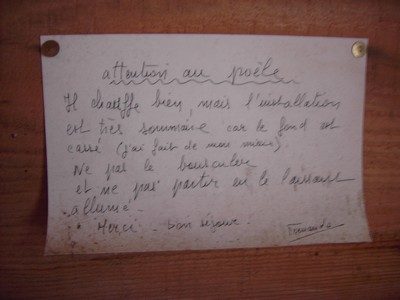 attention au poêle
Il chauffe bien, mais l'installation
est très sommaire car le fond est
cassé (j'ai fait de mon mieux).
Ne pas le bousculer
et ne pas partir en le laissant
allumé.
Merci - bon séjour.
Fernande